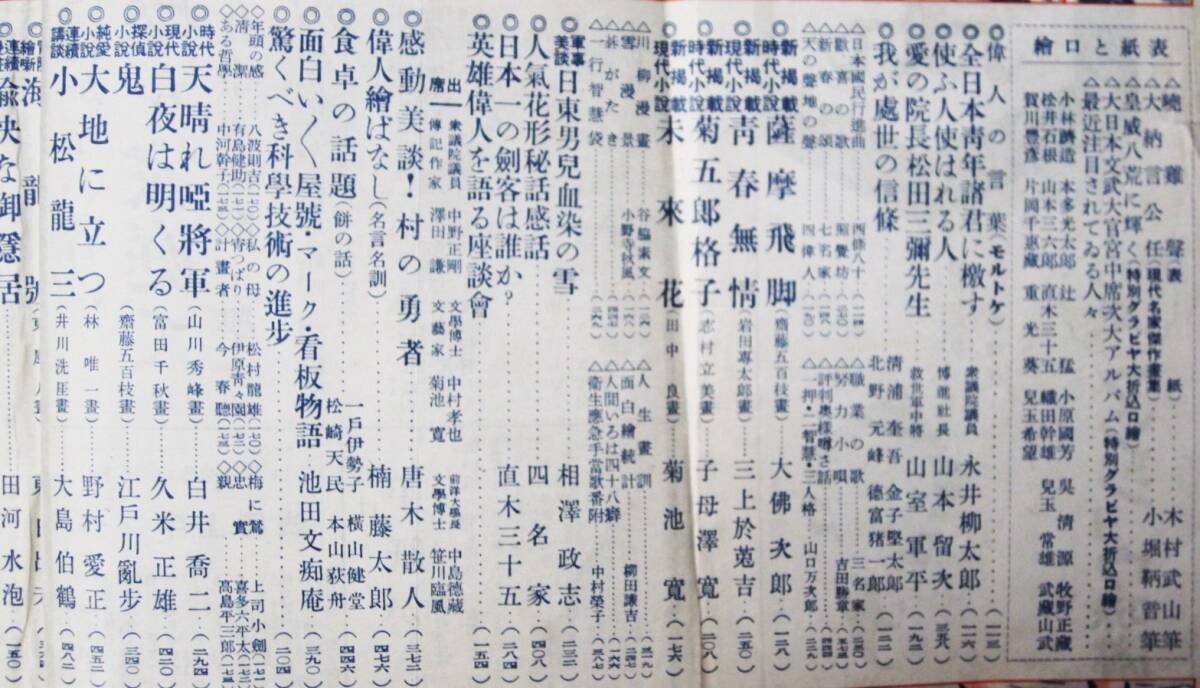 表紙と口繪
△曉雞聲(表紙)……木村武山筆
△大納言公任(現代名家傑作畫集)……小堀鞆音筆
△皇威八荒に輝く(特別グラビヤ大折込口繪)
△大日本文武大官宮中席次大アルバム(特別グラビヤ大折込口繪)
△最近注目されてゐる人々
小林躋造 本多光太郎 辻猛 小原國芳 吳清源 牧野正藏
松井石根 山本三六郎 直木三十五 織田幹雄 兒玉常雄 武藏山武
賀川豐彥 片岡千惠藏 重光葵 兒玉希望
◎偉人の言葉(モルトケ)……(一三)
◎全日本靑年諸君に檄す……衆議院議員 永井柳太郎(一六)
◎使ふ人使はれる人……博進社長 山本留次(三六)
◎愛の院長松田三彌先生……救世軍中將 山室軍平(一九二)
◎我が處世の信條……淸浦奎吾 金子堅太郎 北野元峰 德富猪一郎(一二二)
△日本國民行進曲……四條八十(二四)
△歡喜の歌……照覺坊(三七〇)
△新春の頌……七名家
△天の聲地の聲……四偉人(五〇)
△職業の歌……三名家(三五〇)
△努力小唄……吉田勝章
△評判奧樣噂さ話
△一押・二智慧・三人格……山口万次郎
◎新揭載時代小說 薩摩飛脚(齋藤五百枝畫)……大佛次郎(一三八)
◎新揭載現代小說 靑春無情(岩田專太郎畫)……三上於菟吉(二五〇)
◎新揭載時代小說 菊五郎格子(志村立美畫)……子母澤寬(二〇八)
◎新揭載現代小說 未來花(田中良畫)……菊池寬(一七六)
△川柳漫畫……谷脇素文
△雪漫景……小野寺秋風
△一行智慧袋
△人生畫訓
△面白繪統計……柳田讓吉
△人間いろは四十八癖
△衞生應急手當歌番附……中村榮子
◎軍事美談 日東男兒血染の雪……相澤政志(二三二)
◎人氣花形秘話感話……四名家(四〇八)
◎日本一の劍客は誰か?……直木三十五(二八四)
◎英雄偉人を語る座談會……(一五四)
出席― 衆議院議員 中野正剛 文學博士 中村孝也 前洋大學長 中島德藏
傳記作家 澤田謙 文藝家 菊池寬 文學博士 笹川臨風
◎感動美談!村の勇者……唐木散人(三七二)
◎偉人繪ばなし(名言名訓)……楠藤太郎(四七六)
◎食卓の話題(餅の話)……一戶伊勢子 橫山健堂 松崎天民 本山荻舟(四四六)
◎面白い〱屋號・マーク・看板物語……池田文痴庵(三九〇)
◎驚くべき科學技術の進步……(二〇四)
◇年頭の感……八波則吉(一七〇)◇私の母……松村龍雄(一七〇)◇梅に鶯……上司小劍(一七一)
◇淸潔……有島健助(一七一)◇靑つぱり……伊原靑々園(一七二)◇忠實……喜多六平太(一七二)
◇ある哲學……中河幹子(一七三)◇計畫者……今春聽(一七五)◇親……高島平三郎(一七五)
◎時代小說 天晴れ啞將軍(山川秀峰畫)……白井喬二(二九四)
◎現代小說 白夜は明くる(富田千秋畫)……久米正雄(四二〇)
◎探偵小說 鬼(齋藤五百枝畫)……江戶川亂步(三四〇)
◎純愛小說 大地に立つ(林唯一畫)……野村愛正(四五二)
◎連續講談 小松龍三(井川洗厓畫)……大島伯鶴(四八二)
◎連續 愉快な御隱居……田河水泡(一五〇)